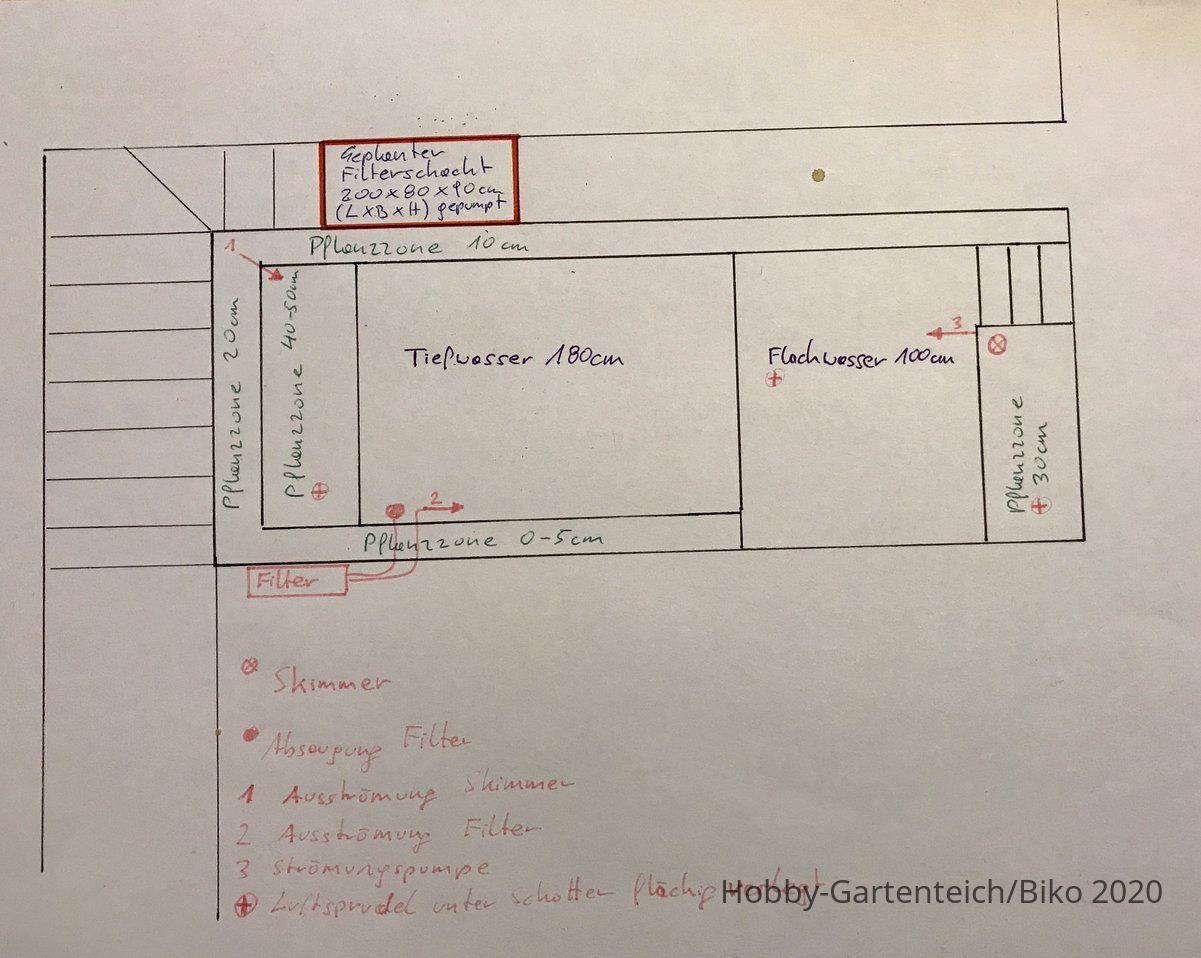 Geplanter
Filterschacht
200x80x90cm
(LxBxH) gepumpt
1
Pflanzzone 10cm
Pflanzzone 20cm
Pflanzzone 40-50cm
Tiefwasser 180cm
Flachwasser 100cm
3
Pflanzzone
30cm
2
Pflanzzone 0-5cm
Filter
Skimmer
Absaugung Filter
1 Ausströmung Skimmer
2 Ausströmung Filter
3 Strömungspumpe
Luftsprudel unter Schotter flächig verlegt
Hobby-Gartenteich/Biko 2020